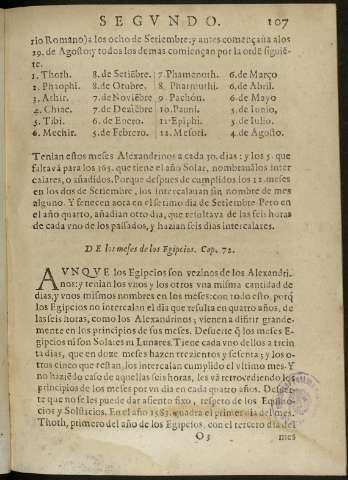 SEGVNDO. 107
rio Romano) a los ocho de Setiembre: y antes començaua a los
29. de Agosto: y todos los demas comiençan por la ordē siguiē-
te.
1. Thoth. 8. de Setiēbre. 7. Phamenoth. 6. de Março
2. Phaophi. 8. de Otubre. 8. Pharmuthi. 6. de Abril.
3. Athir. 7. de Nouiēbre 9. Pachón. 6. de Mayo
4. Chiac. 7. de Deziēbre 10. Pauni. 5. de Iunio,
5. Tibi. 6. de Enero. 11. Epiphi. 5. de Iulio.
6. Mechir. 5. de Febrero. 12. Mesori. 4. de Agosto.
Tenian estos meses Alexandrinos a cada 30. dias: y los 5. que
faltauã para los 365. que tiene el año Solar, nombrauãlos inter
calares, o añadidos. Porque despues de cumplidos los 12. meses
en los dos de Setiembre, los intercalauan sin nombre de mes
alguno. Y fenecen aora en el setimo dia de Setiembre Pero en
el año quarto, añadian otro dia, que resultaua de las seis horas
de cada vno de los passados, y hazian seis dias intercalares.
DE los meses de los Egipcios. Cap. 72.
AVNQVE los Egipcios son vezinos de los Alexandri-
nos: y tenian los vnos y los otros vna misma cantidad de
dias, y vnos mismos nombres en los meses: con todo esto, porq̃
los Egipcios no intercalan el dia que resulta en quatro años, de
las seis horas, como los Alexandrinos, vienen a difirir grande-
mente en los principios de sus meses. Desuerte q̃ los meses E-
gipcios ni son Solares ni Lunares. Tiene cada vno dellos a trein
ta dias, que en doze meses hazen trezientos y sesenta; y los o-
tros cinco que restan, los intercalan cumplido el vltimo mes. Y
no haziēdo caso de aquellas seis horas, les va retrocediendo los
principios de los meses por vn dia en cada quatro años. Desuer
te que no se les puede dar asiento fixo, respeto de los Equino-
cios y Solsticios. En el año 1583. quadra el primer dia del mes
Thoth, primero del año de los Egipcios, con el tercero dia del
O3 mes